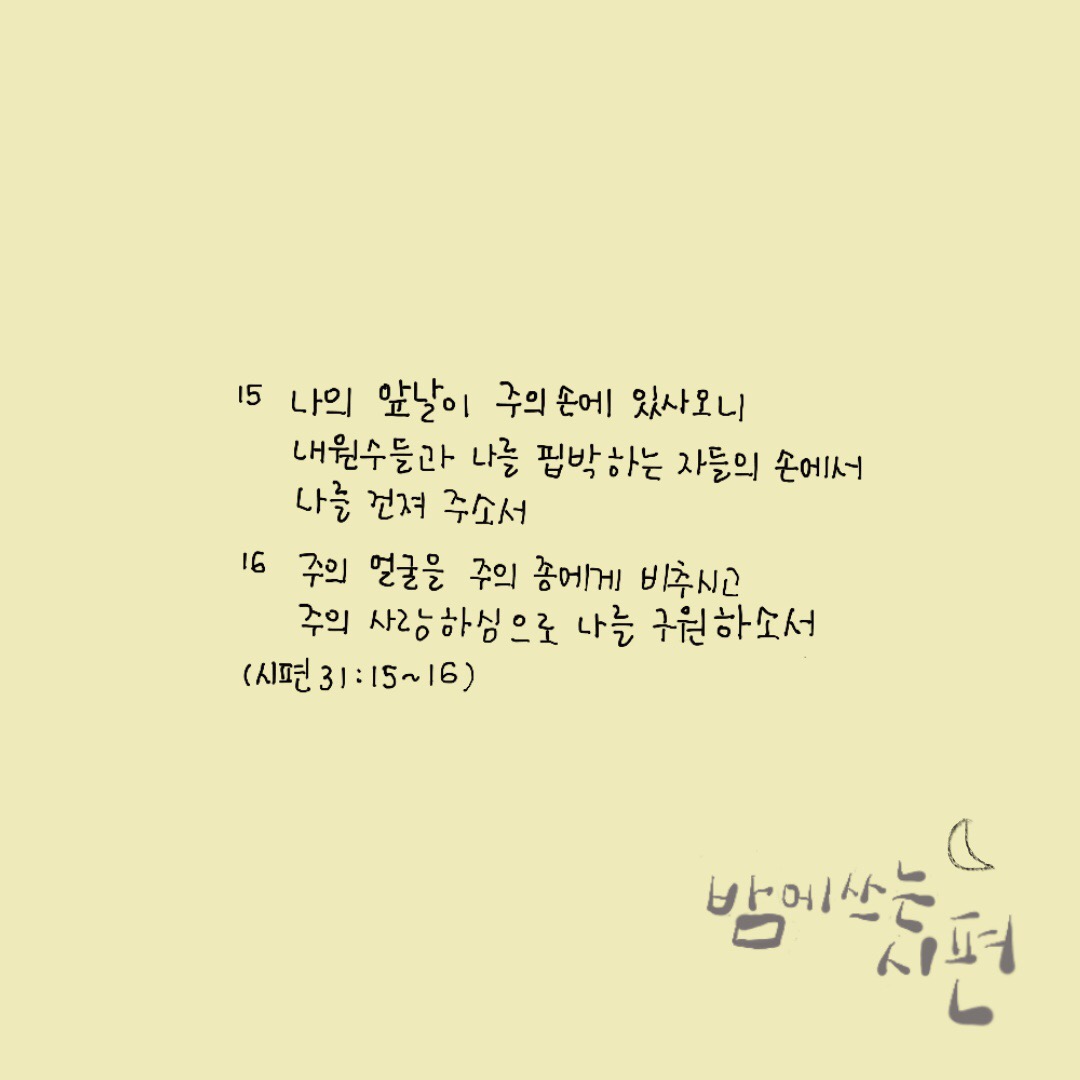 15 나의 앞날이 주의 손에 있사오니
내 원수들과 나를 핍박하는 자들의 손에서
나를 건져 주소서
16 주의 얼굴을 주의 종에게 비추시고
주의 사랑하심으로 나를 구원하소서
(시편 31:15~16)
밤에 쓰는
시편